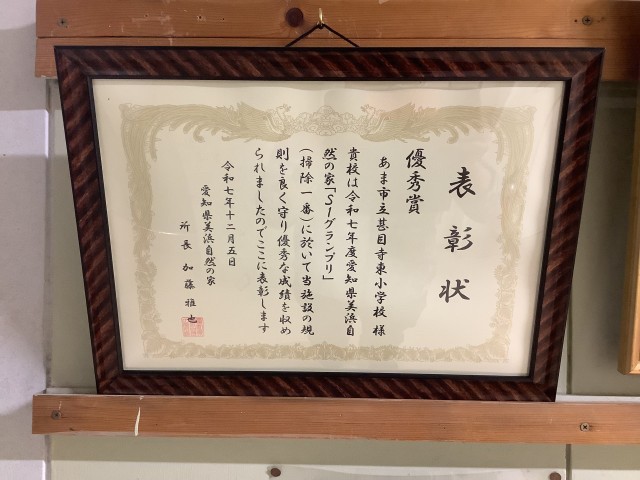 表彰状
優秀賞
あま市立甚目寺東小学校 様
貴校は令和七年度愛知県美浜自
然の家「S1グランプリ」
(掃除一番)に於いて当施設の規
則を良く守り優秀な成績を収め
られましたのでここに表彰します
令和七年十二月五日
愛知県美浜自然の家
所長 加藤雅也